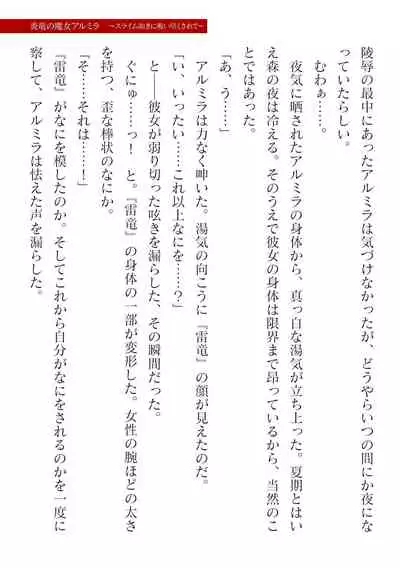 炎竜の魔女アルミラ ～スライム如きに吸い尽くされて～
陵辱の最中にあったアルミラは気づけなかったが、どうやらいつの間にか夜にな
っていたらしい。
むわぁ……。
夜気に晒されたアルミラの身体から、真っ白な湯気が立ち上った。夏期とはい
え森の夜は冷える。そのうえで彼女の身体は限界まで昂っているから、当然のこ
とではあった。
「あ、う……」
アルミラは力なく呻いた。湯気の向こうに『雷竜』の顔が見えたのだ。
「い、いったい……これ以上なにを……？」
と――彼女が弱り切った呟きを漏らした、その瞬間だった。
ぐにゅ……っ！　と。『雷竜』の身体の一部が変形した。女性の腕ほどの太さ
を持つ、歪な棒状のなにか。
「そ……それは……！」
『雷竜』がなにを模したのか。そしてこれから自分がなにをされるのかを一度に
察して、アルミラは怯えた声を漏らした。